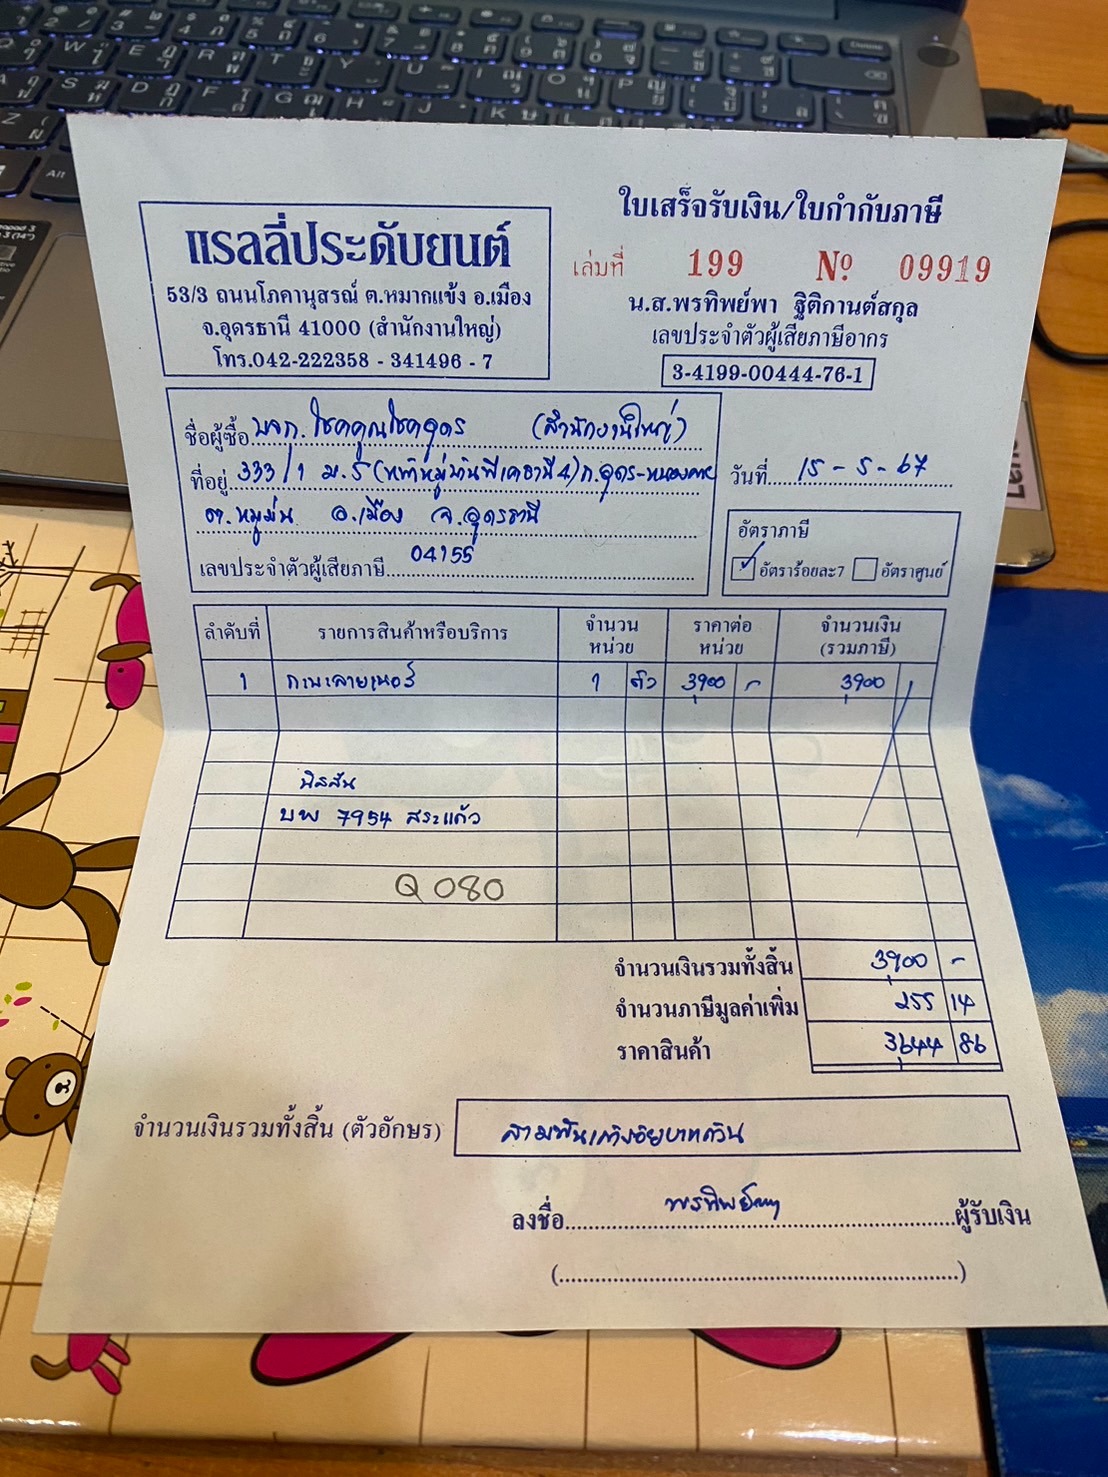 ใบเสร็จรับเงิน/ใบกำกับภาษี
แรลลี่ประดับยนต์
53/3 ถนนโภคานุสรณ์ ต.หมากแข้ง อ.เมือง
จ.อุดรธานี 41000 (สำนักงานใหญ่)
โทร.042-222358 - 341496 - 7
เล่มที่ 199 № 09919
น.ส.พรทิพย์พา ฐิติกานต์สกุล
เลขประจำตัวผู้เสียภาษีอากร
3-4199-00444-76-1
ชื่อผู้ซื้อ บจก. โชคคูณโชคอุดร (สำนักงานใหญ่)
ที่อยู่ 333/1 ม.5 (หน้าหมู่บ้านพีเคธานี 4) ถ.อุดร-หนองคาย
ต.หมูม่น อ.เมือง จ.อุดรธานี
เลขประจำตัวผู้เสียภาษี 04155
วันที่ 15-5-67
อัตราภาษี
✓ อัตราร้อยละ7 อัตราศูนย์
ลำดับที่ รายการสินค้าหรือบริการ จำนวนหน่วย ราคาต่อหน่วย จำนวนเงิน (รวมภาษี)
1 1 ตัว 3,900 - 3,900
นิสสัน
บพ 7954 สระแก้ว
Q080
จำนวนเงินรวมทั้งสิ้น 3,900 -
จำนวนภาษีมูลค่าเพิ่ม 255 14
ราคาสินค้า 3,644 86
จำนวนเงินรวมทั้งสิ้น (ตัวอักษร) สามพันเก้าร้อยบาทถ้วน
ลงชื่อ พรทิพย์พา ผู้รับเงิน